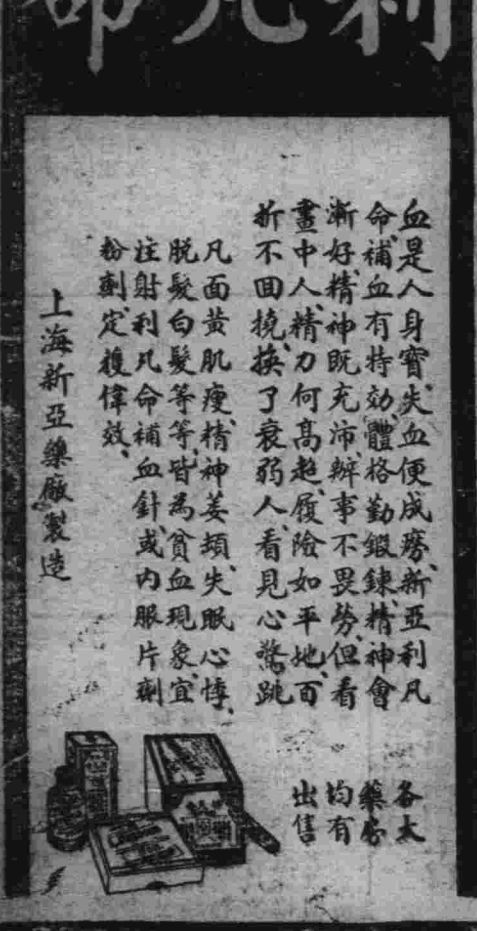 利凡命
血是人身寶、失血便成癆、新亞利凡
命、補血有持効、體格勤鍛鍊、精神會
漸好、精神既充沛、辦事不畏勞、但看
畫中人、精力何高超、履險如平地、百
折不回撓、換了衰弱人、看見心驚跳
凡面黃肌瘦、精神萎頓、失眠心悸、
脫髮白髮等等、皆為貧血現象、宜
注射利凡命補血針、或內服片劑
粉劑、定獲偉效、
上海新亞藥廠製造
各大
藥房
均有
出售